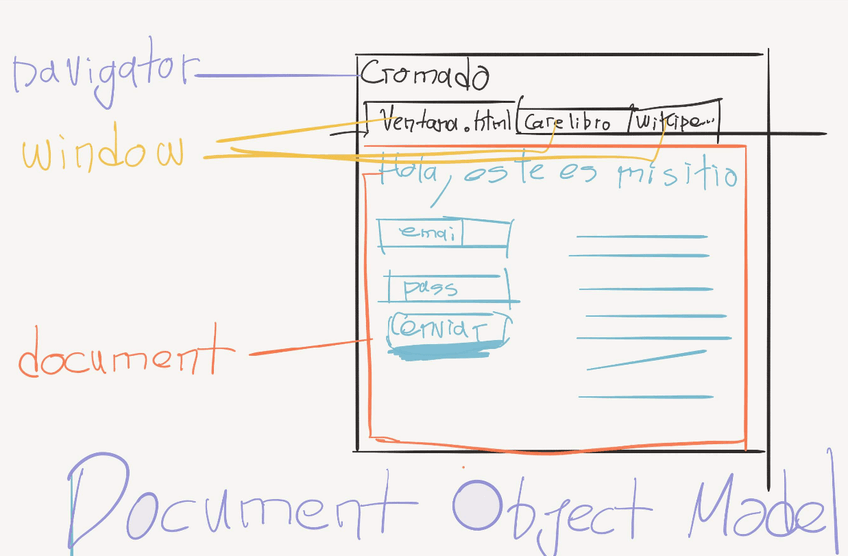 navigator
Cromado
Ventana.html
Carelibro
Wikipe...
window
Hola, este es mi sitio
email
pass
enviar
document
Document Object Model